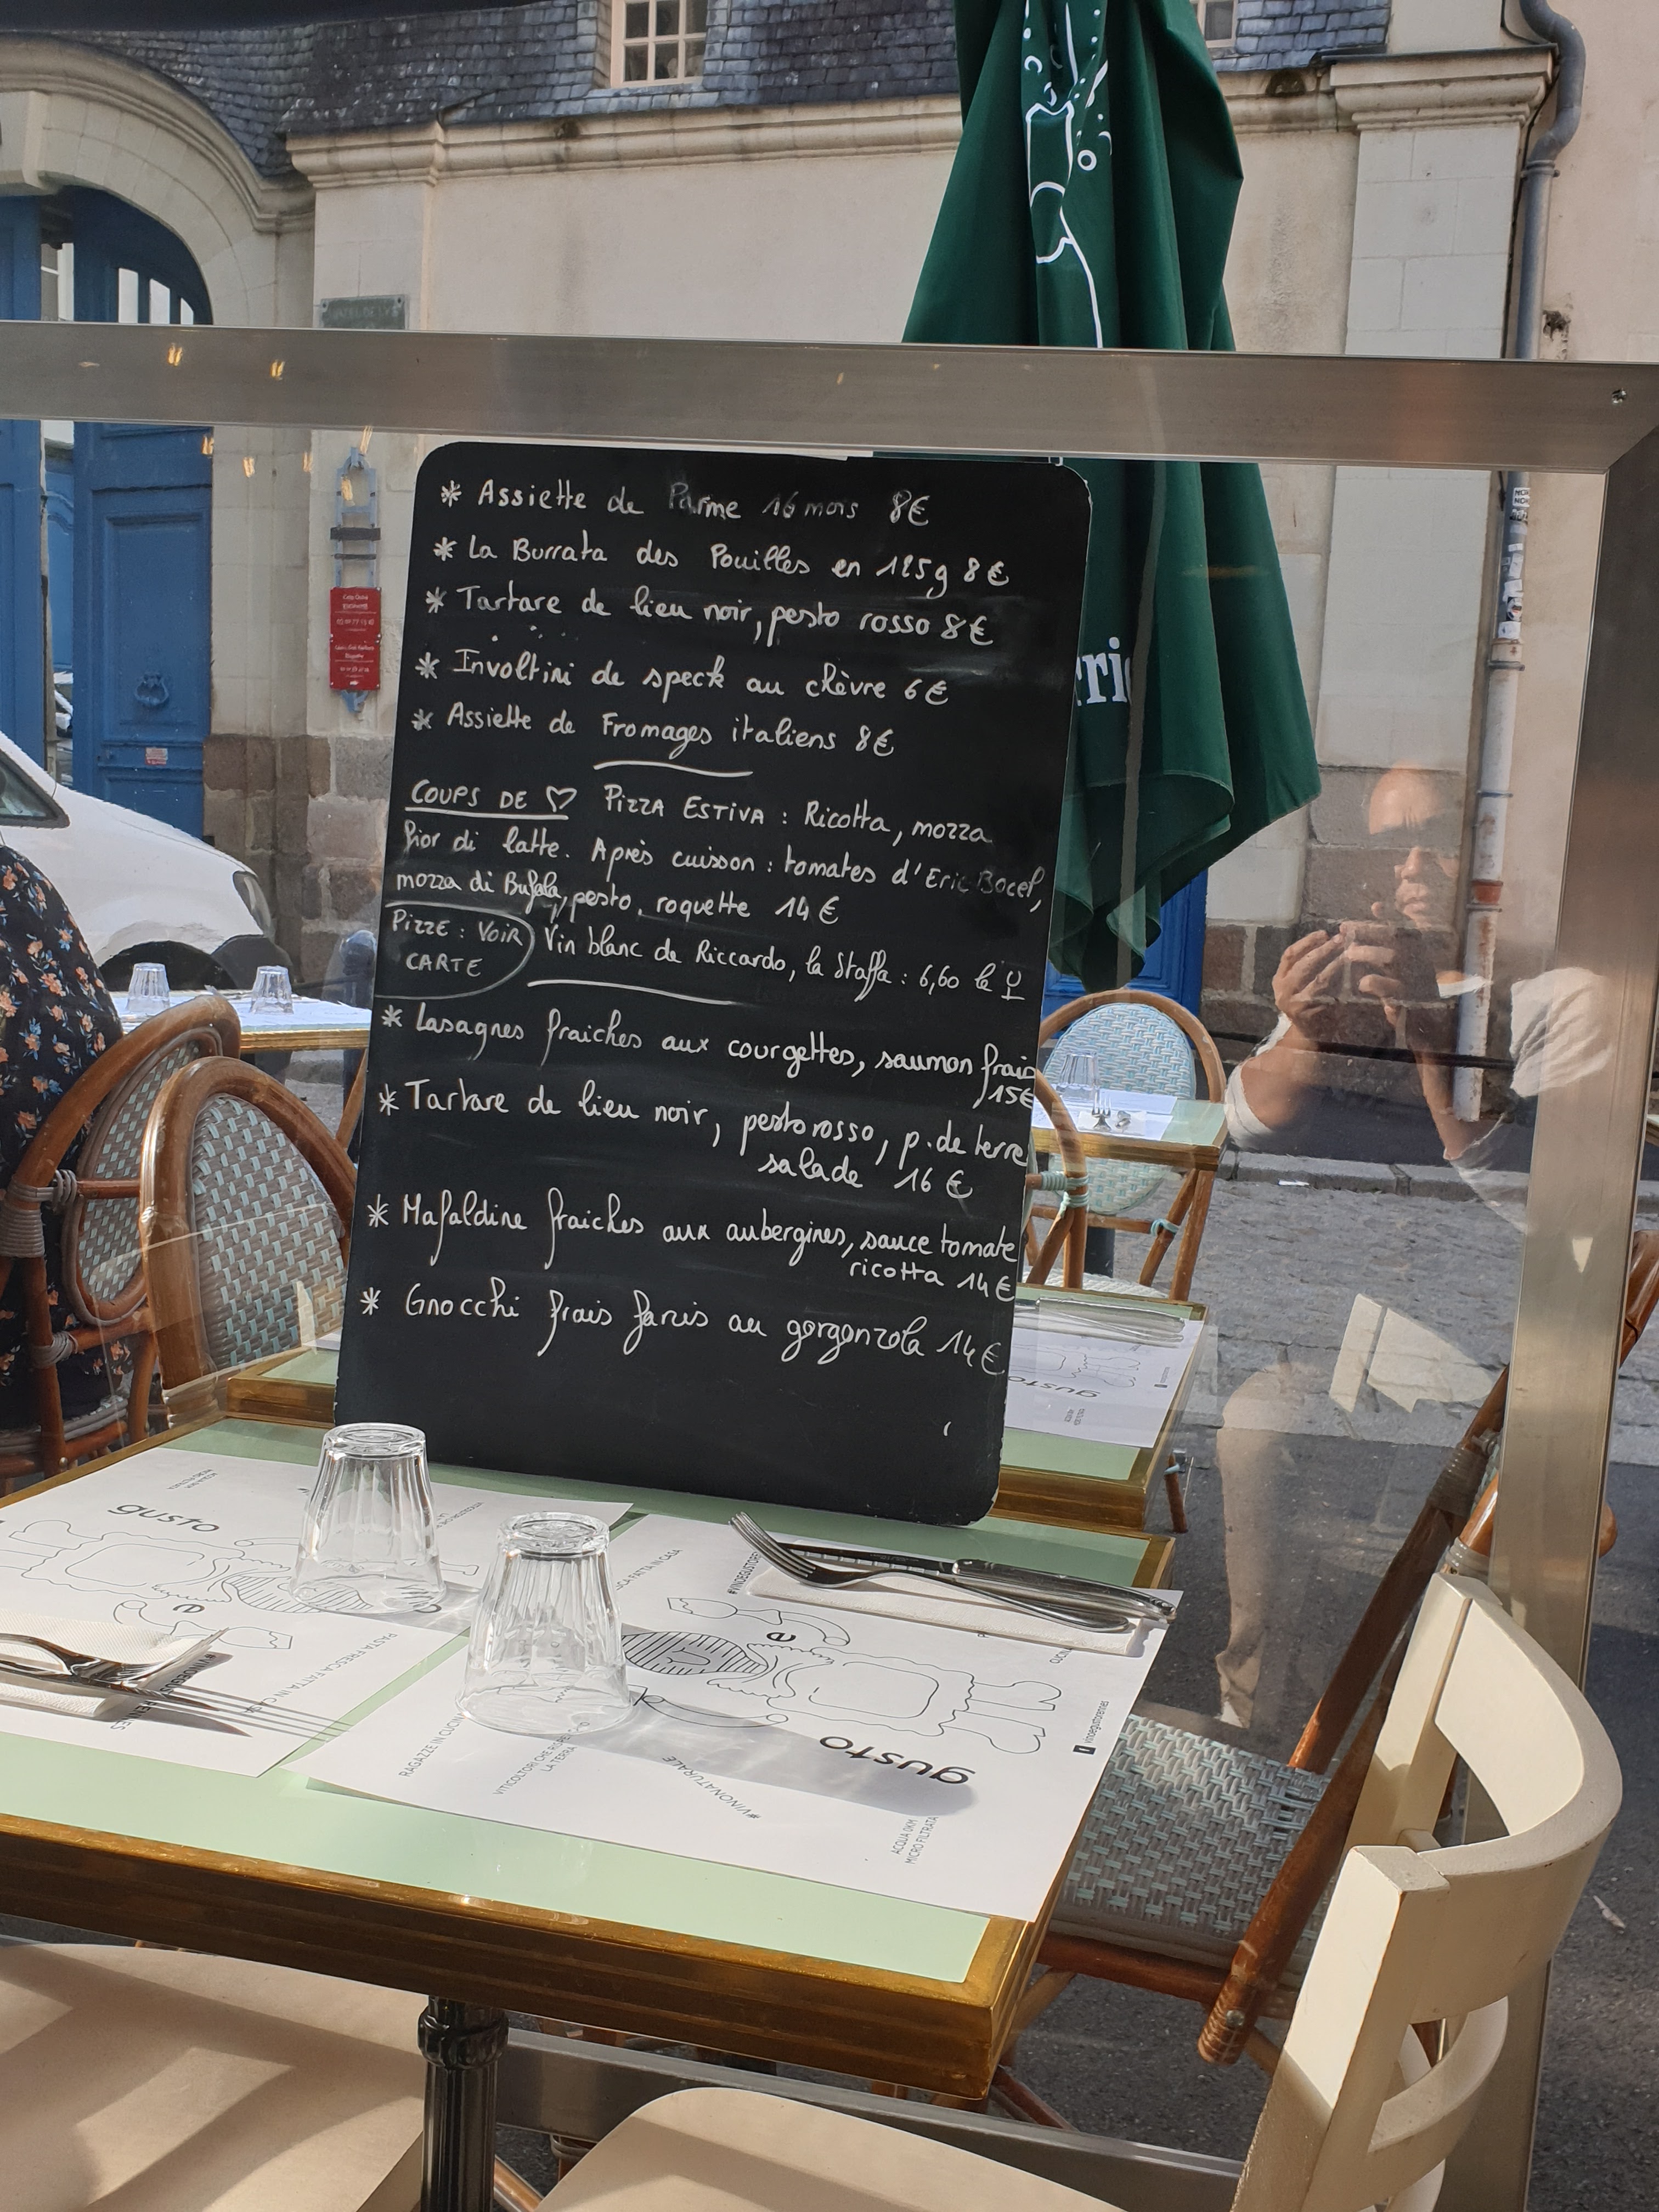 * Assiette de Parme 16 mois 8€
* La Burrata des Pouilles en 125g 8€
* Tartare de lieu noir, pesto rosso 8€
* Involtini de speck au chèvre 6€
* Assiette de Fromages italiens 8€
COUPS DE ♡ PIZZA ESTIVA : Ricotta, mozza
fior di latte. Après cuisson : tomates d'Eric Bocel,
mozza di Bufala, pesto, roquette 14€
PIZZE : VOIR
CARTE
Vin blanc de Riccardo, la Staffa : 6,60 le
* Lasagnes fraiches aux courgettes, saumon frais
15€
* Tartare de lieu noir, pesto rosso, p. de terre
salade 16€
* Mafaldine fraiches aux aubergines, sauce tomate
ricotta 14€
* Gnocchi frais farcis au gorgonzola 14€
gusto
e
PASTA FRESCA FATTA IN CASA
e
gusto
#VINONATURALE
VITICOLTORI CHE
LA TERRA
RAGAZZE IN CUCINA
ACQUA 0KM
MICRO FILTRATA
gusto